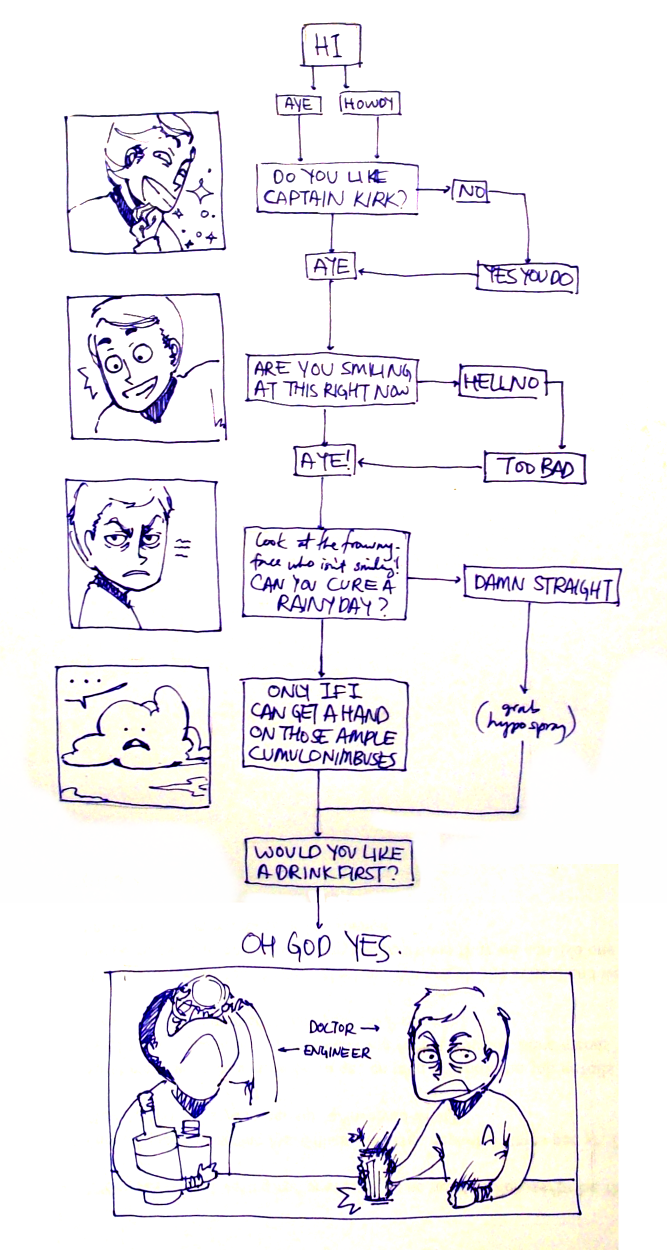 HI
AYE
HOWDY
DO YOU LIKE
CAPTAIN KIRK?
NO
AYE
YES YOU DO
ARE YOU SMILING
AT THIS RIGHT NOW
HELL NO
AYE!
TOO BAD
Look at the frowny-
face who isn't smiling!
CAN YOU CURE A
RAINY DAY?
DAMN STRAIGHT
...
ONLY IF I
CAN GET A HAND
ON THOSE AMPLE
CUMULONIMBUSES
(grab
hypospray)
WOULD YOU LIKE
A DRINK FIRST?
OH GOD YES.
DOCTOR
ENGINEER